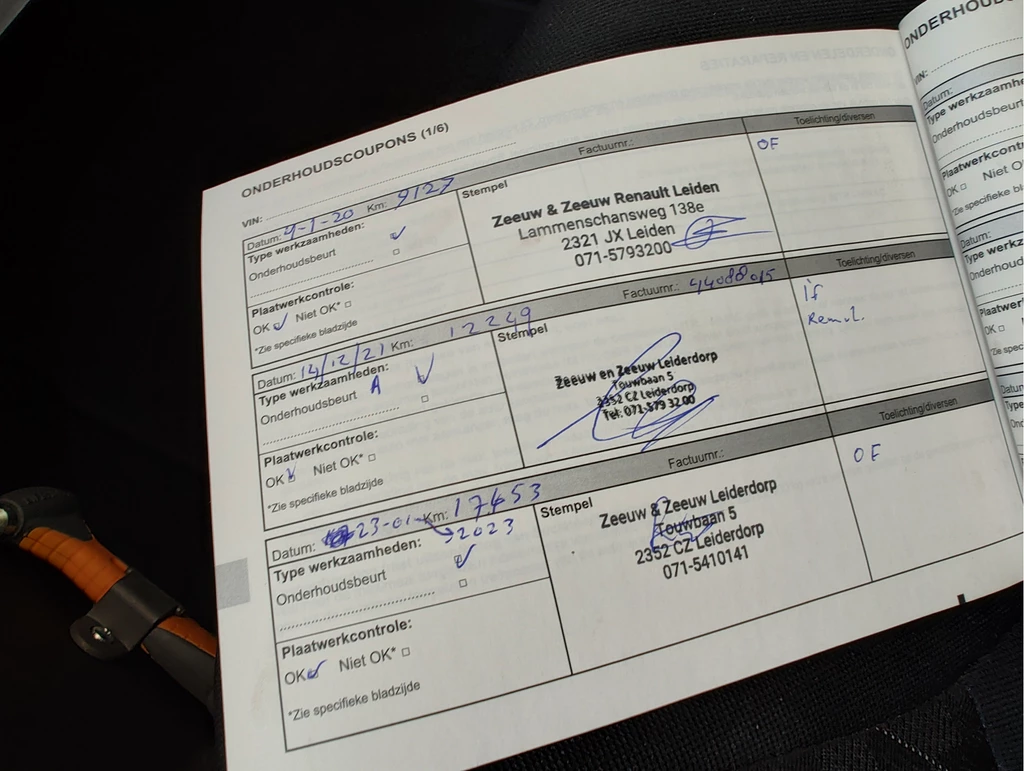 ONDERHOUDSCOUPONS (1/6)
VIN:
Factuurnr.:
Toelichting/diversen
Datum: 9-1-20 Km: 9127
Stempel
OF
Type werkzaamheden:
Onderhoudsbeurt
Zeeuw & Zeeuw Renault Leiden
Lammenschansweg 138e
2321 JX Leiden
071-5793200
Plaatwerkcontrole:
OK Niet OK*
*Zie specifieke bladzijde
Factuurnr.:
Toelichting/diversen
Datum: 14/12/21 Km: 12249
Stempel
Type werkzaamheden:
Onderhoudsbeurt A
Zeeuw en Zeeuw Leiderdorp
Touwbaan 5
2352 CZ Leiderdorp
Tel: 071-579 32 00
Plaatwerkcontrole:
OK Niet OK*
*Zie specifieke bladzijde
Factuurnr.:
Toelichting/diversen
Datum: 23-01- Km: 17453
2023
Stempel
OF
Type werkzaamheden:
Onderhoudsbeurt
Zeeuw & Zeeuw Leiderdorp
Touwbaan 5
2352 CZ Leiderdorp
071-5410141
Plaatwerkcontrole:
OK Niet OK*
*Zie specifieke bladzijde
VIN:
Datum:
Type werkzaamh
Onderhoudsbeurt
Plaatwerkcontr
OK